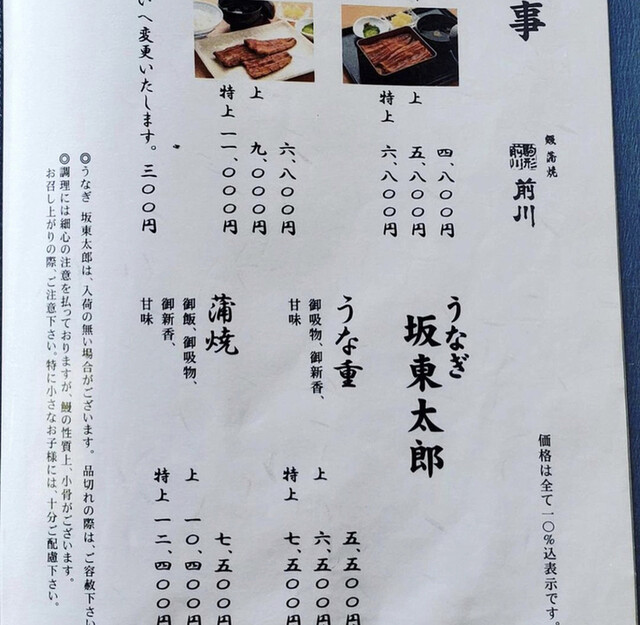 事
鰻蒲焼
駒形
前川
前川
価格は全て一〇％込表示です。
四、八〇〇円
上 五、八〇〇円
特上 六、八〇〇円
六、八〇〇円
上 九、〇〇〇円
特上 一一、〇〇〇円
いへ変更いたします。 三〇〇円
うなぎ
坂東太郎
うな重
御吸物、御新香、
甘味
五、五〇〇円
上 六、五〇〇円
特上 七、五〇〇円
蒲焼
御飯、御吸物、
御新香、
甘味
七、五〇〇円
上 一〇、四〇〇円
特上 一二、四〇〇円
◎うなぎ 坂東太郎は、入荷の無い場合がございます。 品切れの際は、ご容赦下さい
◎調理には細心の注意を払っておりますが、鰻の性質上、小骨がございます。
お召し上がりの際、ご注意下さい。特に小さなお子様には、十分ご配慮下さい。